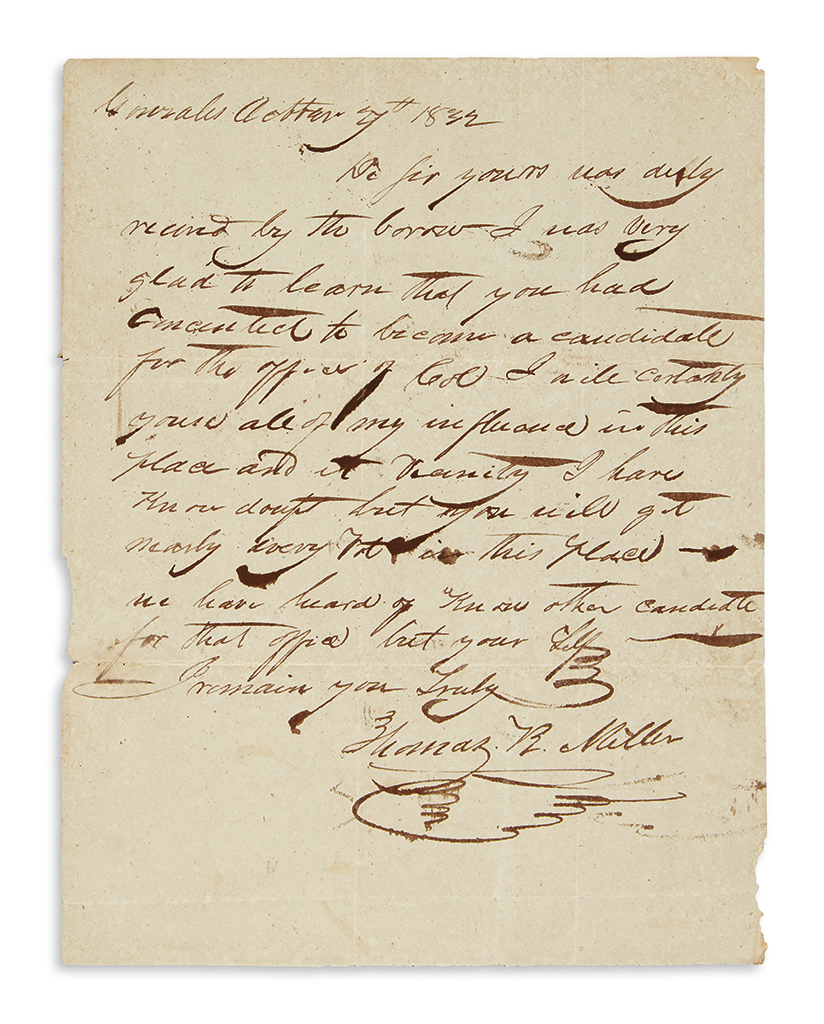 Gonzales Octber 7th 1832
De Sir yours was duly
receivd by the borow I was very
glad to learn that you had
concented to become a candidate
for the office of Col I wile certanly
youse all of my influance in this
place and it Vicinity I have
Know doupt but you will get
nearly every Vote in this place
we have heard of Know other candidate
for that office but your Self
I remain you Truly
Thomas R. Miller